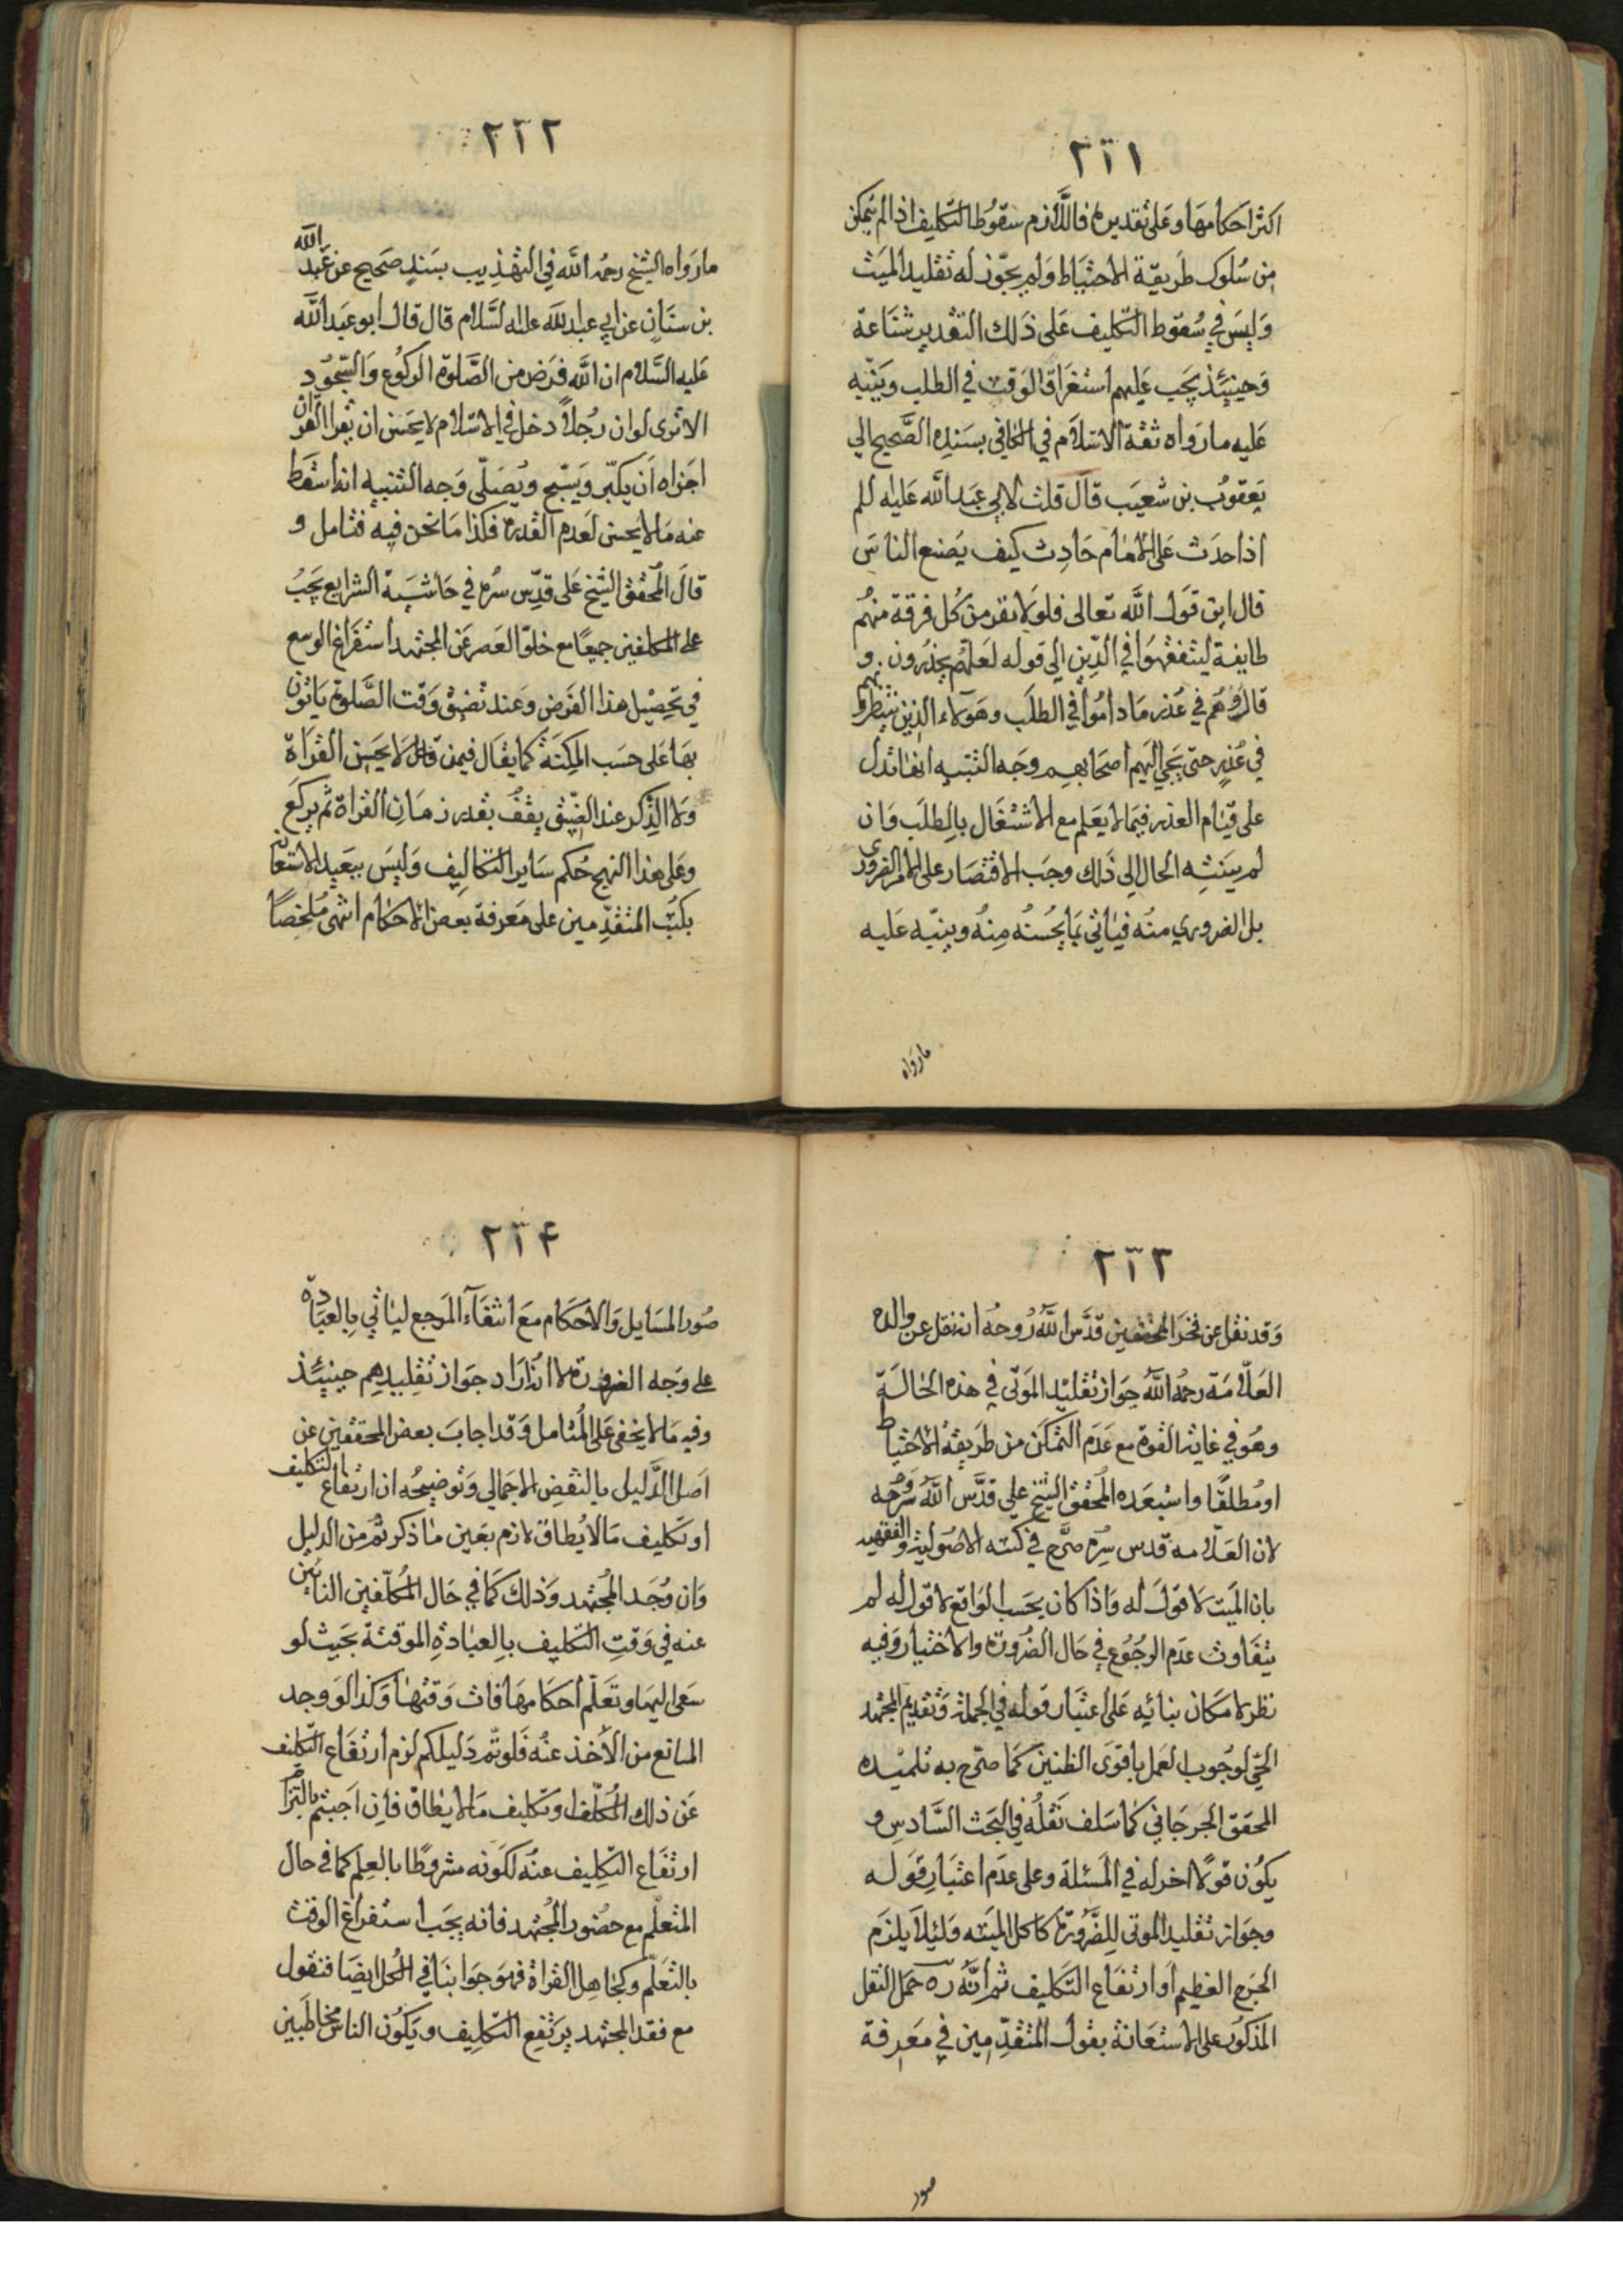 ٢٢١
اكثر احكامها وعلى تقديره فاللازم سقوط التكليف اذا لم يتمكن
من سلوك طريقة الاحتياط ولم يجوز له تقليد الميت
وليس في سقوط التكليف على ذلك التقدير شناعة
وحينئذ يجب عليهم استغراق الوقت في الطلب وينبه
عليه ما رواه ثقة الاسلام في الكافي بسنده الصحيح الى
يعقوب بن شعيب قال قلت لابي عبد الله عليه للم
اذا حدث على الامام حادث كيف يصنع الناس
قال اين قول الله تعالى فلولا نفر من كل فرقة منهم
طايفة ليتفقهوا في الدين الى قوله لعلهم يحذرون و
قال هم في عذر ما داموا في الطلب وهؤلاء الذين ينتظرونهم
في عذر حتى يجي اليهم اصحابهم وجه التنبيه انها تدل
على قيام العذر فيما لا يعلم مع الاشتغال بالطلب وان
لم ينته الحال الى ذلك وجب الاقتصار على الامر الضروري
بل الضروري منه فياتي بما يحسنه منه وينبه عليه
مارواه
٢٢٢
ما رواه الشيخ رحمه الله في التهذيب بسند صحيح عن عبد الله
بن سنان عن ابي عبد الله عليه لسلام قال قال ابو عبد الله
عليه السلام ان الله فرض من الصلوة الركوع والسجود
الا ترى لو ان رجلا دخل في الاسلام لا يحسن ان يقرا القران
اجزاه ان يكبر ويسبح ويصلي وجه التنبيه انه اسقط
عنه ما لا يحسن لعدم القدرة فكذا ما نحن فيه فتامل و
قال المحقق الشيخ على قدس سره في حاشية الشرايع يجب
على المكلفين جميعا مع خلو العصر عن المجتهد استفراغ الوسع
في تحصيل هذا الفرض وعند تضيق وقت الصلوة ياتون
بها على حسب المكنة كما يقال فيمن لا يحسن القراة
ولا الذكر عند الضيق يقف بقدر زمان القراة ثم يركع
وعلى هذا النهج حكم ساير التكاليف وليس ببعيد الاستعانة
بكتب المتقدمين على معرفة بعض الاحكام انتهى ملخصا
٢٢٣
وقد نقل عن فخر المحققين قدس الله روحه انه نقل عن والده
العلامة رحمه الله جواز تقليد الموتى في هذه الحالة
وهو في غاية القوة مع عدم التمكن من طريقة الاحتياط
او مطلقا واستبعده المحقق الشيخ علي قدس الله روحه
لان العلامة قدس سره صرح في كتبه الاصولية والفقهيه
بان الميت لا قول له واذا كان بحسب الواقع لا قول له لم
يتفاوت عدم الرجوع في حال الضرورة والاختيار وفيه
نظر لامكان بنائه على اعتبار قوله في الجملة وتقديم المجتهد
الحي لوجوب العمل باقوى الظنين كما صرح به تلميذه
المحقق الجرجاني كما سلف نقله في البحث السادس و
يكون قولا اخر له في المسئلة وعلى عدم اعتبار قوله
وجواز تقليد الموتى للضرورة كاكل الميته ولئلا يلزم
الحرج العظيم او ارتفاع التكليف ثم انه ره حمل النقل
المذكور على الاستعانة بقول المتقدمين في معرفة
صور
٢٢۴
صور المسايل والاحكام مع انتفاء المرجع لياتي بالعبادة
على وجه الضرورة لا انه اراد جواز تقليدهم حينئذ
وفيه ما لا يخفى على المتامل وقد اجاب بعض المحققين عن
اصل الدليل بالنقض الاجمالي وتوضيحه ان ارتفاع التكليف
او تكليف ما لا يطاق لازم بعين ما ذكرتم من الدليل
وان وجد المجتهد وذلك كما في حال المكلفين النائين
عنه في وقت التكليف بالعبادة الموقتة بحيث لو
سعى اليها وتعلم احكامها فات وقتها وكذا لو وجد
المانع من الاخذ عنه فلو تم دليلكم لزم ارتفاع التكليف
عن ذلك المكلف او تكليف ما لا يطاق فان اجبتم بالتزام
ارتفاع التكليف عنه لكونه مشروطا بالعلم كما في حال
المتعلم مع حضور المجتهد فانه يجب استفراغ الوقت
بالتعلم وكجاهل القراة فهو جوابنا في المحل ايضا فنقول
مع فقد المجتهد يرتفع التكليف ويكون الناس مخاطبين